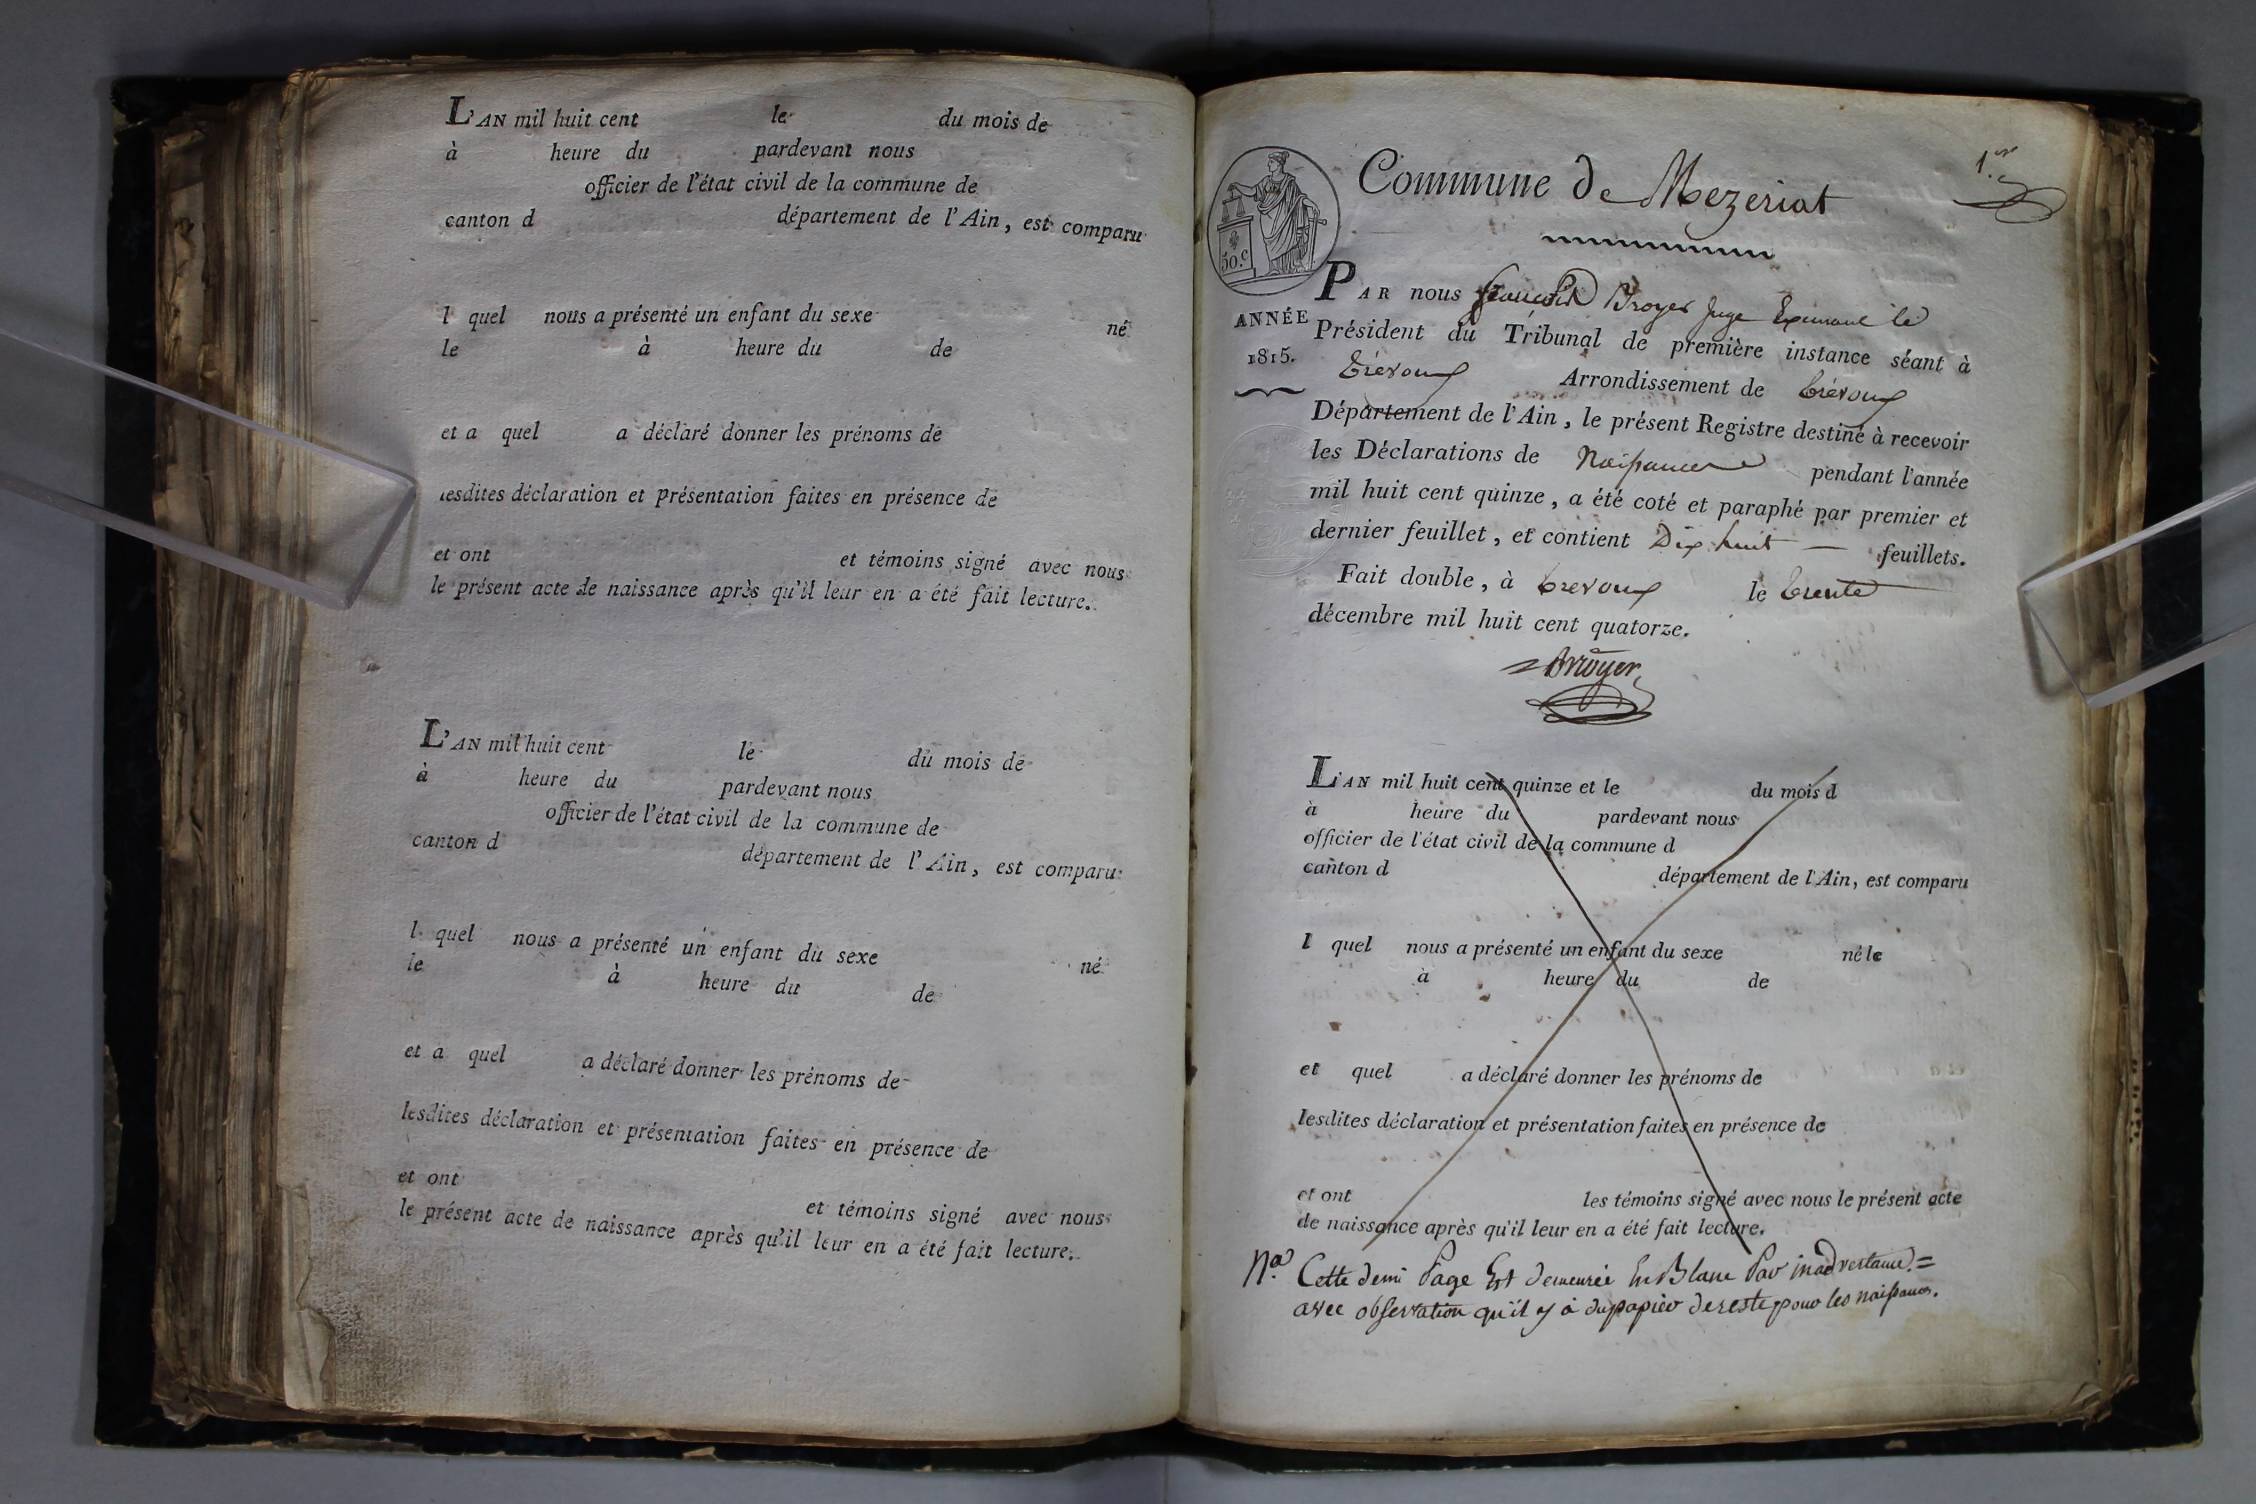 L'AN mil huit cent le du mois de
à heure du pardevant nous
officier de l'état civil de la commune de
canton d département de l'Ain, est comparu
l quel nous a présenté un enfant du sexe né
le à heure du de
et a quel a déclaré donner les prénoms de
lesdites déclaration et présentation faites en présence de
et ont et témoins signé avec nous
le présent acte de naissance après qu'il leur en a été fait lecture.
L'AN mil huit cent le du mois de
à heure du pardevant nous
officier de l'état civil de la commune de
canton d département de l'Ain, est comparu
l quel nous a présenté un enfant du sexe né
le à heure du de
et a quel a déclaré donner les prénoms de
lesdites déclaration et présentation faites en présence de
et ont et témoins signé avec nous
le présent acte de naissance après qu'il leur en a été fait lecture.
1.er
Commune de Mezeriat
50.c
ANNÉE
1815.
PAR nous Broyer Juge le
Président du Tribunal de première instance séant à
trévoux Arrondissement de trévoux
Département de l'Ain, le présent Registre destiné à recevoir
les Déclarations de Naissance pendant l'année
mil huit cent quinze, a été coté et paraphé par premier et
dernier feuillet, et contient Dix huit — feuillets.
Fait double, à trevoux le trente
décembre mil huit cent quatorze.
Broyer
L'AN mil huit cent quinze et le du mois d
à heure du pardevant nous
officier de l'état civil de la commune d
canton d département de l'Ain, est comparu
l quel nous a présenté un enfant du sexe né le
à heure du de
et quel a déclaré donner les prénoms de
lesdites déclaration et présentation faites en présence de
et ont les témoins signé avec nous le présent acte
de naissance après qu'il leur en a été fait lecture.
N.a Cette demi Page Est demeurée En Blanc Par inadvertance.=
avec observation qu'il y à du papier de reste pour les naissances.